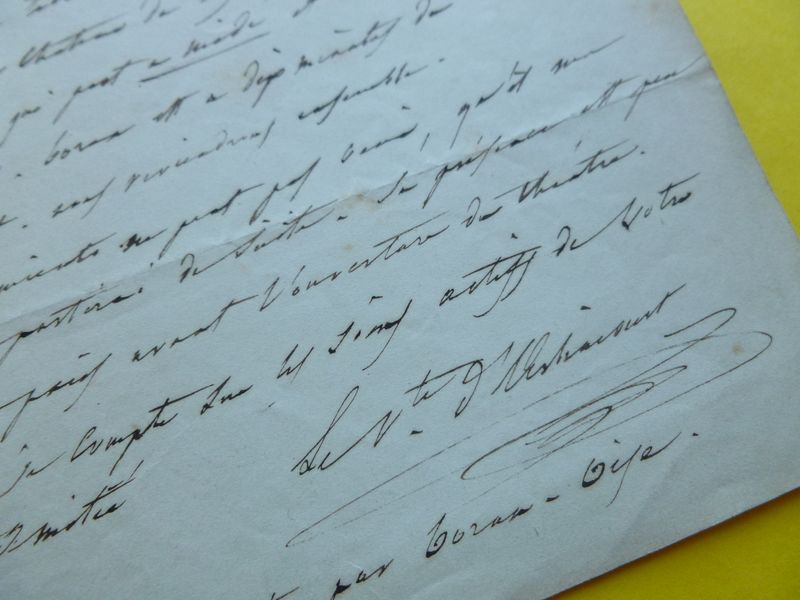 château de
qui part à midi et
Boran est à dix minutes de
nous reviendrons ensemble.
ne peut pas venir, qu'il me
partirai de suite. Sa présence est peu
avant l'ouverture du théâtre.
je compte sur les soins actifs de votre
amitié
Le Vte d'Arlincourt
par Boran - Oise.